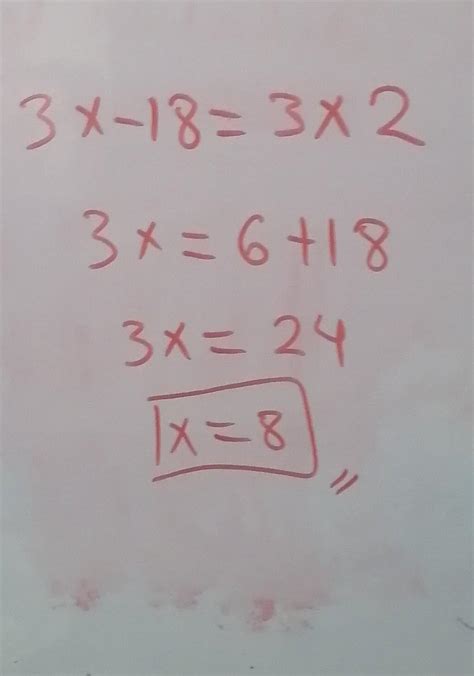 3x-18=3x2
3x=6+18
3x=24
x=8